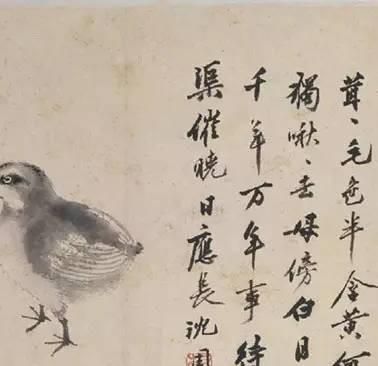 茸〻毛色半含黄何
獨啾〻去母傍白日
千年万年事待
渠催曉日應長沈周